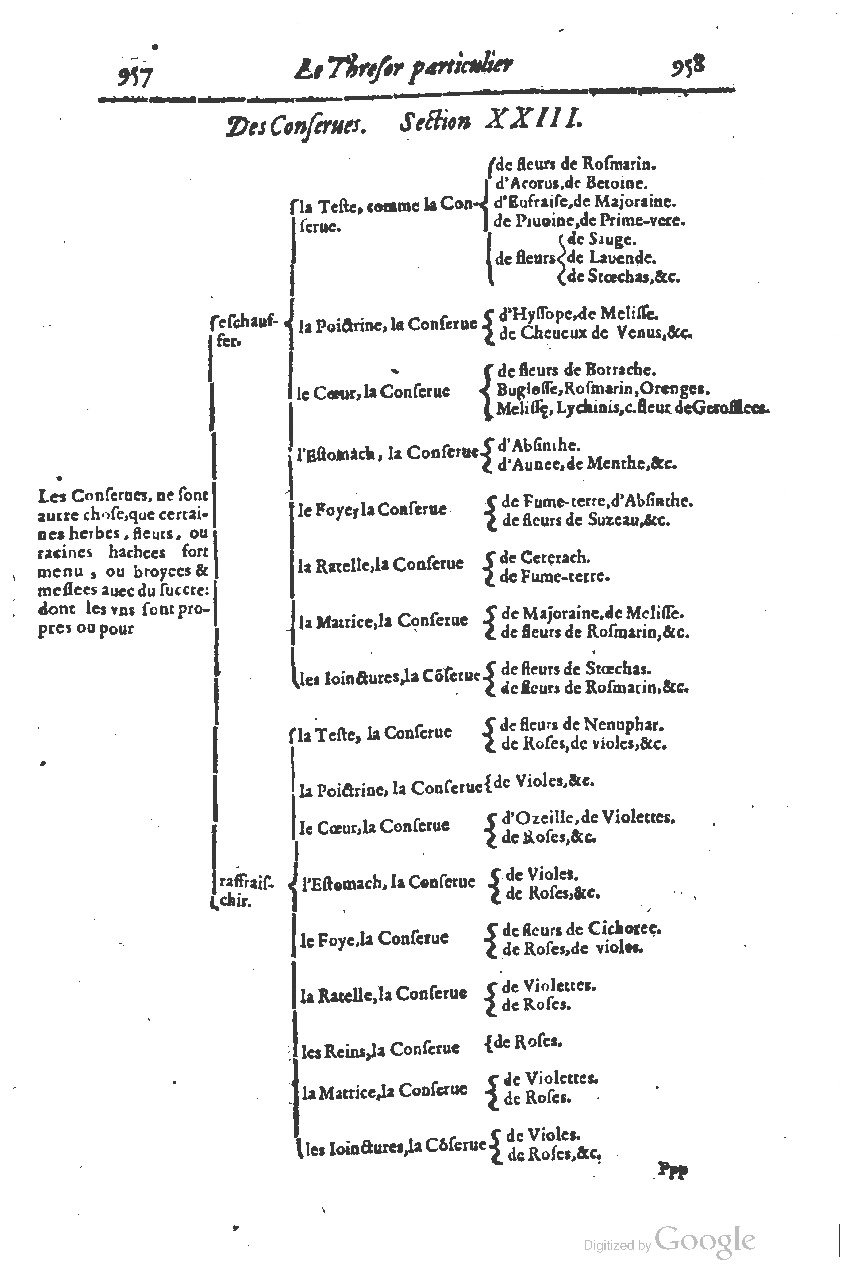 957 Le Threſor particulier 958
Des Conſerues. Section XXIII.
Les Conſerues, ne ſont
autre choſe, que certai-
nes herbes, fleurs, ou
racines hachees fort
menu, ou broyees &
meſlees auec du ſuccre:
dont les vns ſont pro-
pres ou pour
eſchauf-
fer.
la Teſte, comme la Con-
ſerue.
de fleurs de Roſmarin.
d'Acorus, de Betoine.
d'Eufraiſe, de Majoraine.
de Piuoine, de Prime-vere.
de fleurs
de Sauge.
de Lauende.
de Stœchas, &c.
la Poictrine, la Conſerue
d'Hyſſope, de Meliſſe.
de Cheueux de Venus, &c.
le Cœur, la Conſerue
de fleurs de Borrache.
Bugloſſe, Roſmarin, Orenges.
Meliſſe, Lychinis, c. fleur de Geroffleees.
l'Eſtomach, la Conſerue
d'Abſinthe.
d'Aunee, de Menthe, &c.
le Foye, la Conſerue
de Fume-terre, d'Abſinthe.
de fleurs de Suzeau, &c.
la Ratelle, la Conſerue
de Ceterach.
de Fume-terre.
la Matrice, la Conſerue
de Majoraine, de Meliſſe.
de fleurs de Roſmarin, &c.
les Ioinctures, la Cõſerue
de fleurs de Stœchas.
de fleurs de Roſmarin, &c.
raffraiſ-
chir.
la Teſte, la Conſerue
de fleurs de Nenuphar.
de Roſes, de violes, &c.
la Poictrine, la Conſerue
de Violes, &c.
le Cœur, la Conſerue
d'Ozeille, de Violettes.
de Roſes, &c.
l'Eſtomach, la Conſerue
de Violes.
de Roſes, &c.
le Foye, la Conſerue
de fleurs de Cichoree.
de Roſes, de violes.
la Ratelle, la Conſerue
de Violettes.
de Roſes.
les Reins, la Conſerue
de Roſes.
la Matrice, la Conſerue
de Violettes.
de Roſes.
les Ioinctures, la Cõſerue
de Violes.
de Roſes, &c.
Ppp
Digitized by Google